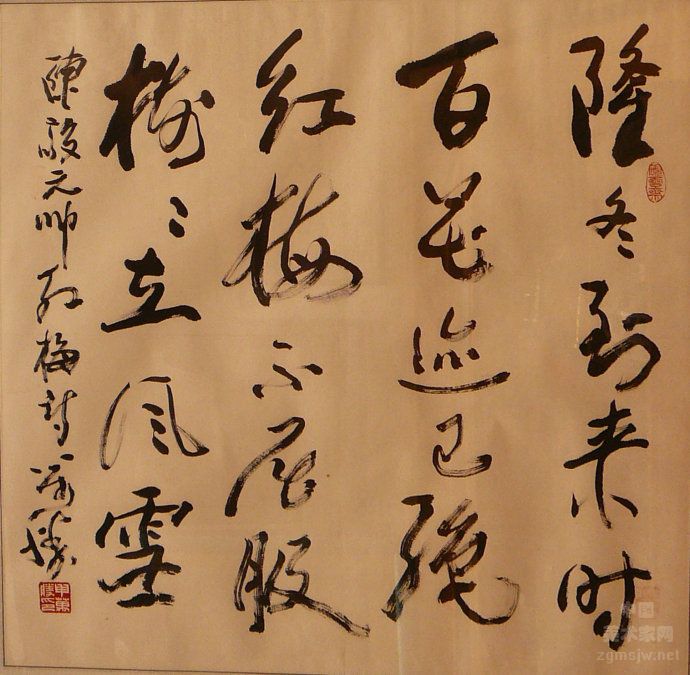 隆冬到来时
百花迹已绝
红梅不屈服
树〻立风雪
陈毅元帅红梅诗 万胜
申万胜印
中国美术家网
zgmsjw.net